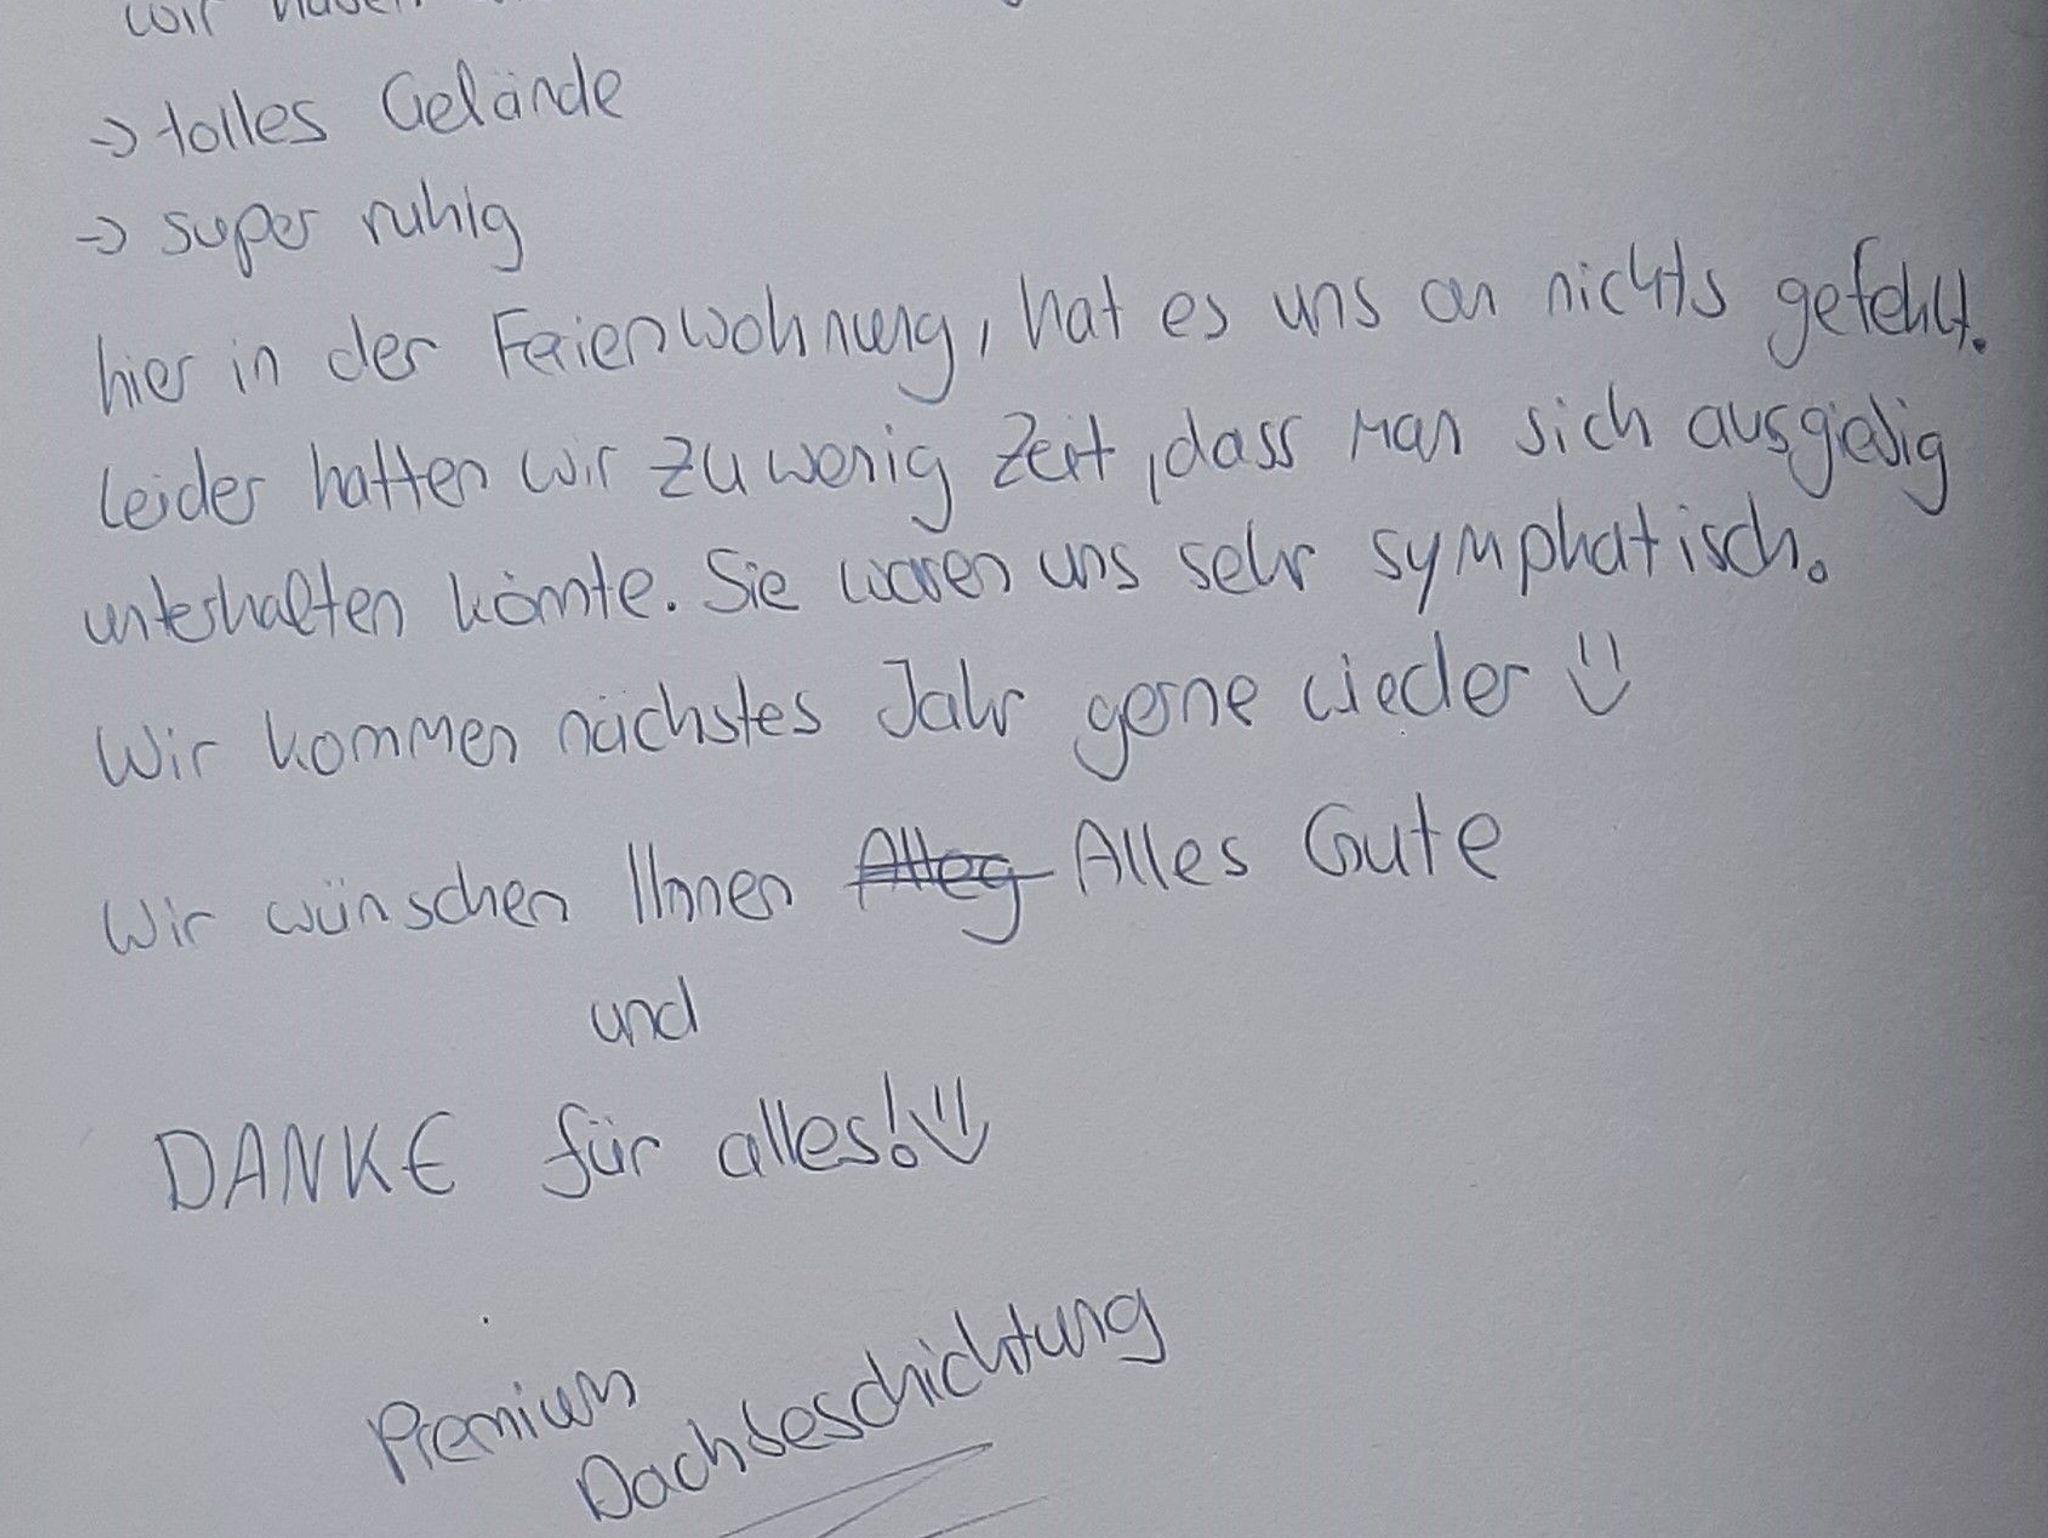 wir haben
→ tolles Gelände
→ super ruhig
hier in der Ferienwohnung, hat es uns an nichts gefehlt.
Leider hatten wir zu wenig Zeit, dass man sich ausgiebig
unterhalten könnte. Sie waren uns sehr symphatisch.
Wir kommen nächstes Jahr gerne wieder :)
Wir wünschen Ihnen Alles Gute
und
DANKE für alles! :)
Premium
Dachbeschichtung